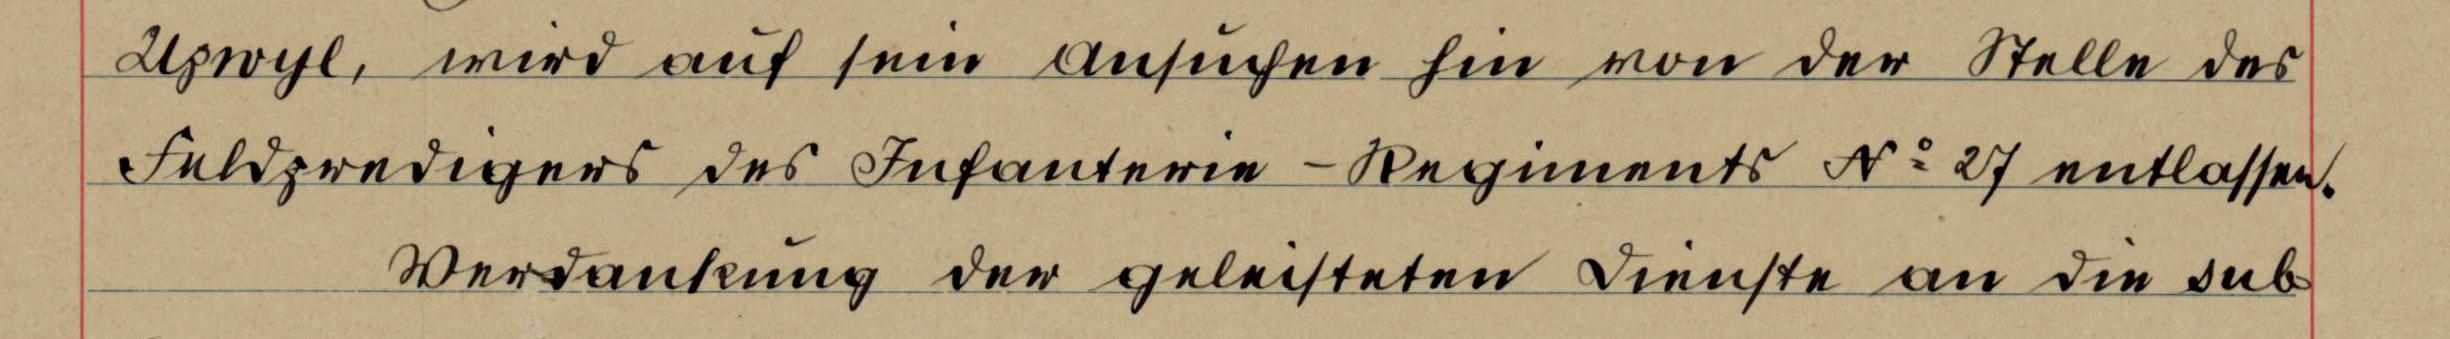 Uzwyl, wird auf sein Ansuchen hin von der Stelle des
Feldpredigers des Infanterie-Regiments No 27 entlassen.
Verdankung der geleisteten Dienste an die sub